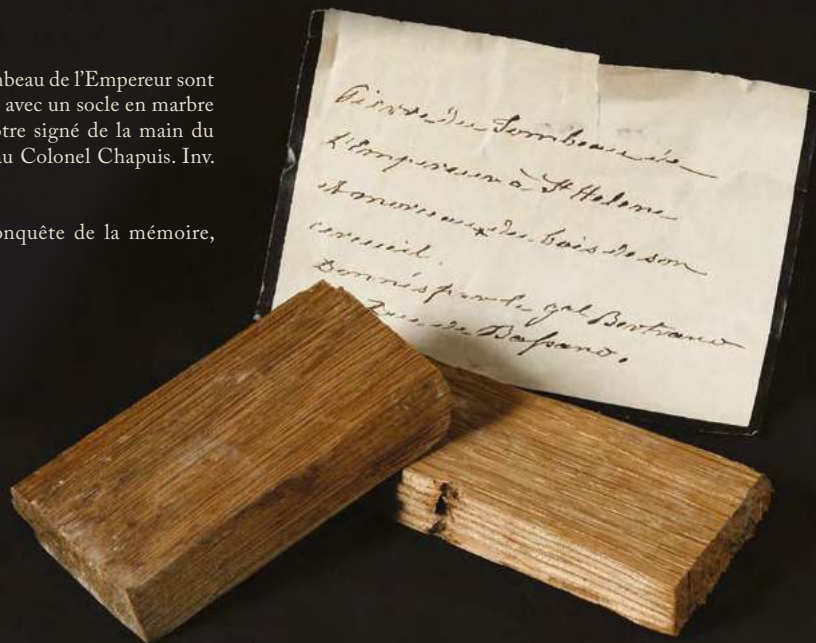 mbeau de l'Empereur sont
avec un socle en marbre
otre signé de la main du
au Colonel Chapuis. Inv.
onquête de la mémoire,
Pierre du Tombeau de
L'Empereur à Ste Helene
& morceau du bois de son
cercueil.
Donnés par le gal Bertrand
Duc de Bassano.